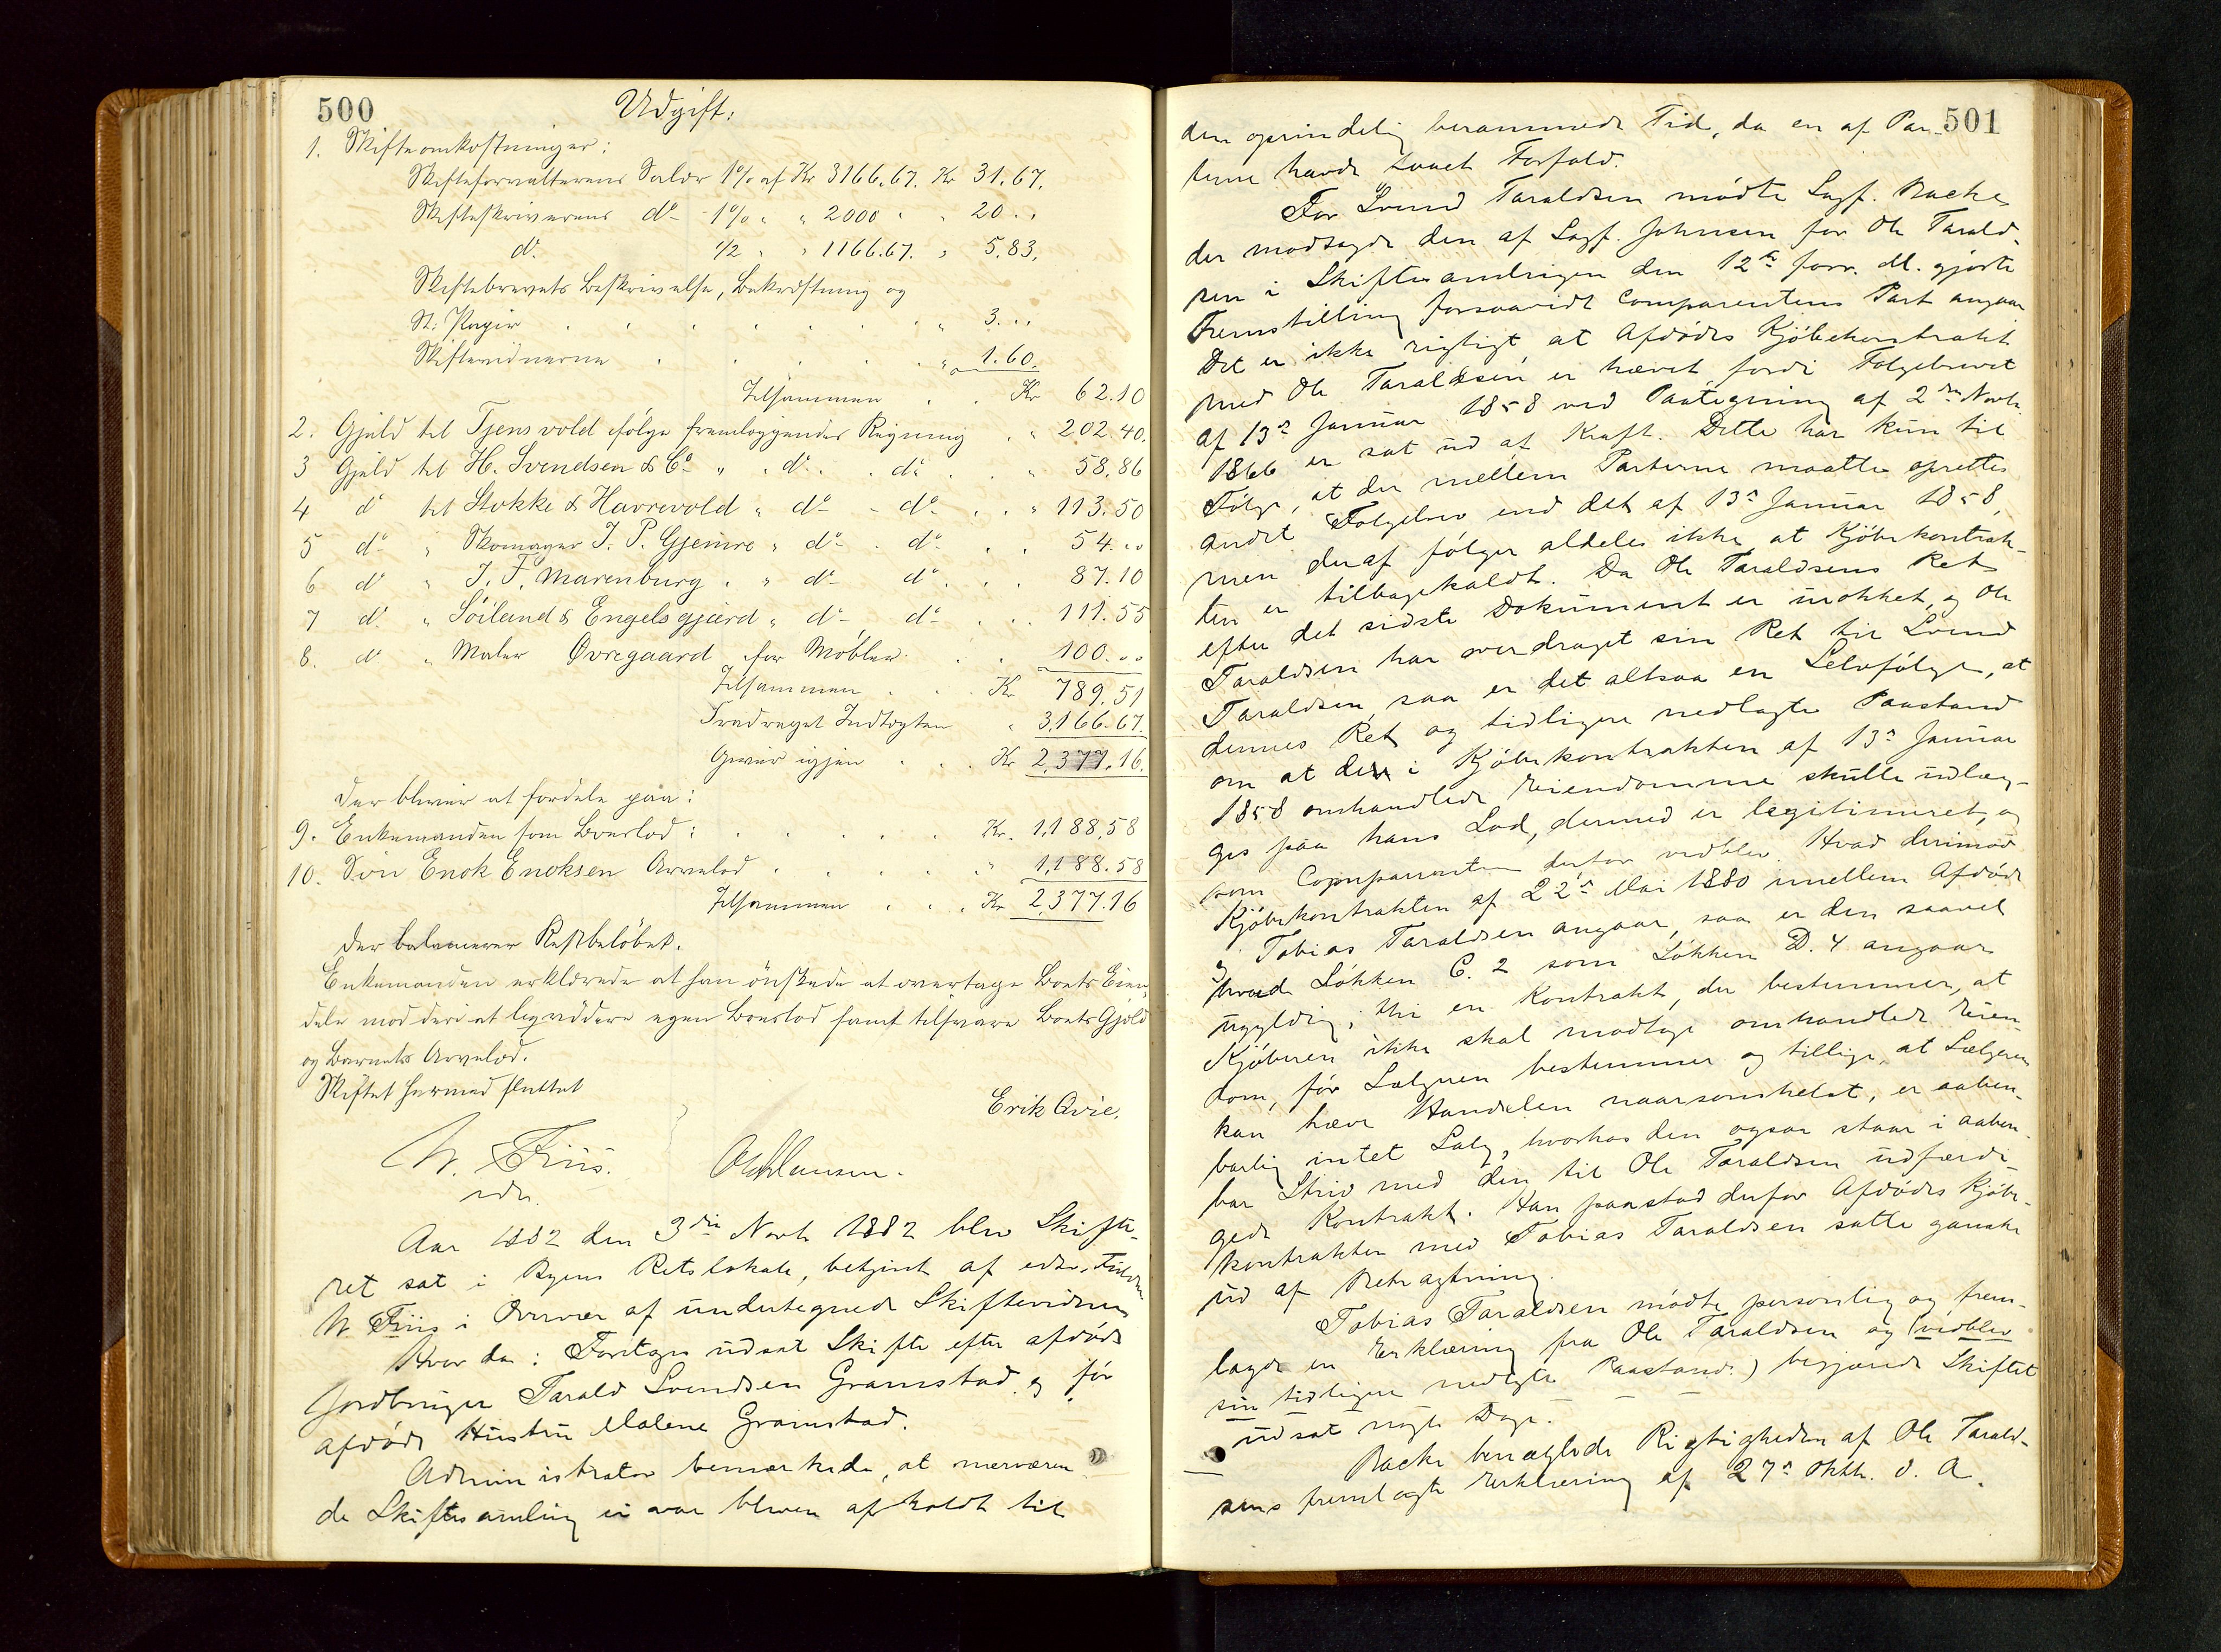 500
Udgift:
1. Skifteomkostninger:
Skifteforvalterens Salær 1% af Kr 3166.67. Kr 31.67.
Skifteskriverens do - 1% " " 2000 " " 20..
do. 1/2 " " 1166.67. " 5.83.
Skiftebrevets Beskrivelse, Bekræftning og
St: Papir . . . . . . " 3...
Skiftevidnerne . . . . . " 1.60.
Tilsammen . . Kr 62.10
2. Gjæld til Tjensvold ifölge fremlæggendes Regning . " 202.40.
3 Gjæld til H. Svendsen & Co " " do. . do . . " 58.86
4 do til Stokke & Havrevold " do - do . . " 113.50
5 do " Skomager J. P. Gjemre " do . do . . 54...
6 do " J. F. Marenburg . " do do . . . 87.10
7 do " Söiland & Engelsgjærd " do - do . . . 111.55
8. do " Maler Øvregaard for Möbler . . . 100...
Tilsammen . . . Kr 789.51
Fradraget Indtægten " 3,166.67.
Giver igjen . . . Kr 2,377.16.
der bliver at fordele paa:
9. Enkemanden som Boeslod: . . . . . Kr. 1,188,58
10. Sön Enok Enoksen Arvelod . . . . . " 1,188.58
Tilsammen . . . Kr 2,377.16
der balancerer Restbelöbet.
Enkemanden erklærede at han önskede at overtage Boets Eien-
dele mod deri at liqvidere egen Boeslod samt tilsvare Boets Gjæld
og Barnets Arvelod.
Skiftet hermed sluttet
Erik Qvie.
N. Friis. Hansen.
edv.
Aar 1882 den 3die Novb 1882 blev Skifte-
ret sat i Byens Retslokale, betjent af edsv. Fuldm
N Friis i Overvær af undertegnede Skiftevidner
Hvor da: Foretoges udsat Skifte efter afdöde
Jordbruger Tarald Svendsen Gramstad og för
afdöde Hustru Malene Gramstad.
Administrator bemærkede, at nærværen
de Skiftesamling ei var bleven afholdt til
501
den oprindelig berammede Tid, da en af Par-
terne havde havt Forfald.
For Svend Taraldsen mödte Sagf. Backe
der modsagde den af Sagf. Johnsen for Ole Tarald-
sen i Skiftesamlingen den 12te forr. M. gjorte
Fremstilling forsaavidt Comparentens Part angaar
Det er ikke rigtigt at Afdödes Kjöbekontrakt
med Ole Taraldsen er hævet fordi Fölgebrevet
af 13de Januar 1858 ved Paategning af 2den Novb.
1866 er sat ud af Kraft. Dette har kun til
Fölge, at der mellem Parterne maatte oprettes
andet Fölgebrev end det af 13de Januar 1858,
men deraf fölger aldeles ikke, at Kjöbekontrak-
ten er tilbagekaldt. Da Ole Taraldsens Ret
efter det sidste Dokument er urokket, og Ole
Taraldsen har overdraget sin Ret til Svend
Taraldsen, saa er det altsaa en Selvfölge, at
dennes Ret og tidligere nedlagte Paastand
om at den i Kjöbekontrakten af 13de Januar
1858 omhandlede Eiendomme skulle udlæg-
ges paa hans Lod, dermed er legitimeret, og
som Comparenten derfor vedblev. Hvad derimod
Kjöbekontrakten af 22de Mai 1880 mellem Afdöde
og Tobias Taraldsen angaar, saa er den saavel
hvad Lökken C. 2 som Lökken D. 4 angaar
ugyldig; thi en Kontrakt, der bestemmer, at
Kjöberen ikke skal modtage omhandlede Eien-
dom, för Sælgeren bestemmer og tillige, at Sælgeren
kan hæve Handelen naarsomhelst, er aaben-
barlig intet Salg, hvorhos den ogsaa staar i aaben-
bar Strid med den til Ole Taraldsen udfærdi-
gede Kontrakt. Han paastod derfor Afdödes Kjöbe-
kontrakten med Tobias Taraldsen satte ganske
ud af Betragtning.
Tobias Taraldsen mödte personlig og frem-
lagde en Erklæring fra Ole Taraldsen og (vedblev
sin tidligere nedlagte Paastand.) begjærede Skiftet
udsat nogle Dage.
Backe benægtede Rigtigheden af Ole Tarald-
sens fremlagte Erklæring af 27de Oktb. d. A.